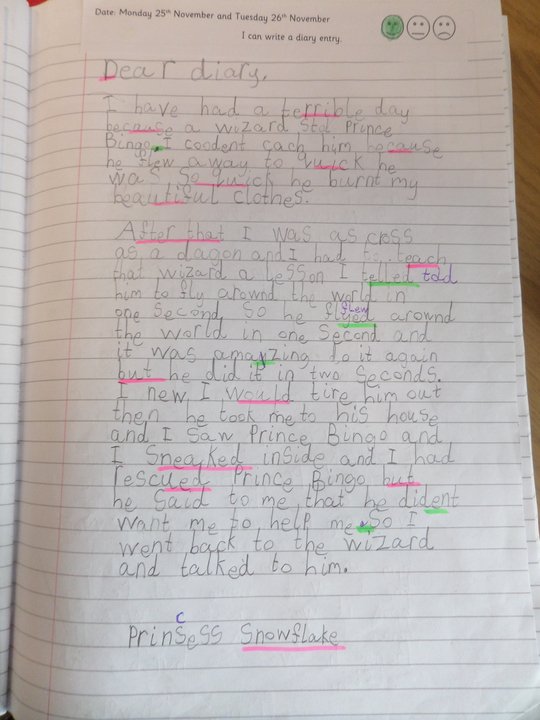 Date: Monday 25th November and Tuesday 26th November
I can write a diary entry.
Dear diary,
I have had a terrible day
because a wizard stol Prince
Bingo. I coodent cach him because
he flew away to quick he
was so quick he burnt my
beautiful clothes.
After that I was as cross
as a dagon and I had to teach
that wizard a lesson I telled told
him to fly around the world in
one second so he flyed flew around
the world in one second and
it was amazing do it again
but he did it in two seconds.
I new I would tire him out
then he took me to his house
and I saw Prince Bingo and
I sneaked inside and I had
rescued Prince Bingo but
he said to me that he dident
want me to help me. So I
went back to the wizard
and talked to him.
c
Prinsess Snowflake